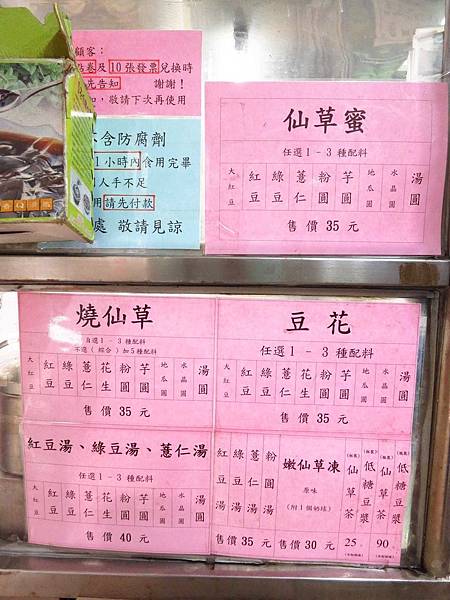 顧客：
點卷及 10 張發票兌換時
先告知 謝謝！
知，敬請下次再使用
不含防腐劑
1 小時內食用完畢
人手不足
用請先付款
處 敬請見諒
仙草蜜
任選 1 - 3 種配料
大紅豆 紅豆 綠豆 薏仁 粉圓 芋圓 地瓜圓 水晶圓 湯圓
售價 35 元
燒仙草
自選 1 - 3 種配料
不選（ 綜合 ）加 5 種配料
大紅豆 紅豆 綠豆 薏仁 花生 粉圓 芋圓 地瓜圓 水晶圓 湯圓
售價 35 元
豆花
任選 1 - 3 種配料
大紅豆 紅豆 綠豆 薏仁 花生 粉圓 芋圓 地瓜圓 水晶圓 湯圓
售價 35 元
紅豆湯、綠豆湯、薏仁湯
任選 1 - 3 種配料
大紅豆 紅豆 綠豆 薏仁 花生 粉圓 芋圓 地瓜圓 水晶圓 湯圓
售價 40 元
紅豆湯 綠豆湯 薏仁湯 粉圓湯
售價 35 元
嫩仙草凍
原味
（附 1 個奶球）
售價 30 元
仙草茶 低糖豆漿
25
仙草茶 低糖豆漿
90